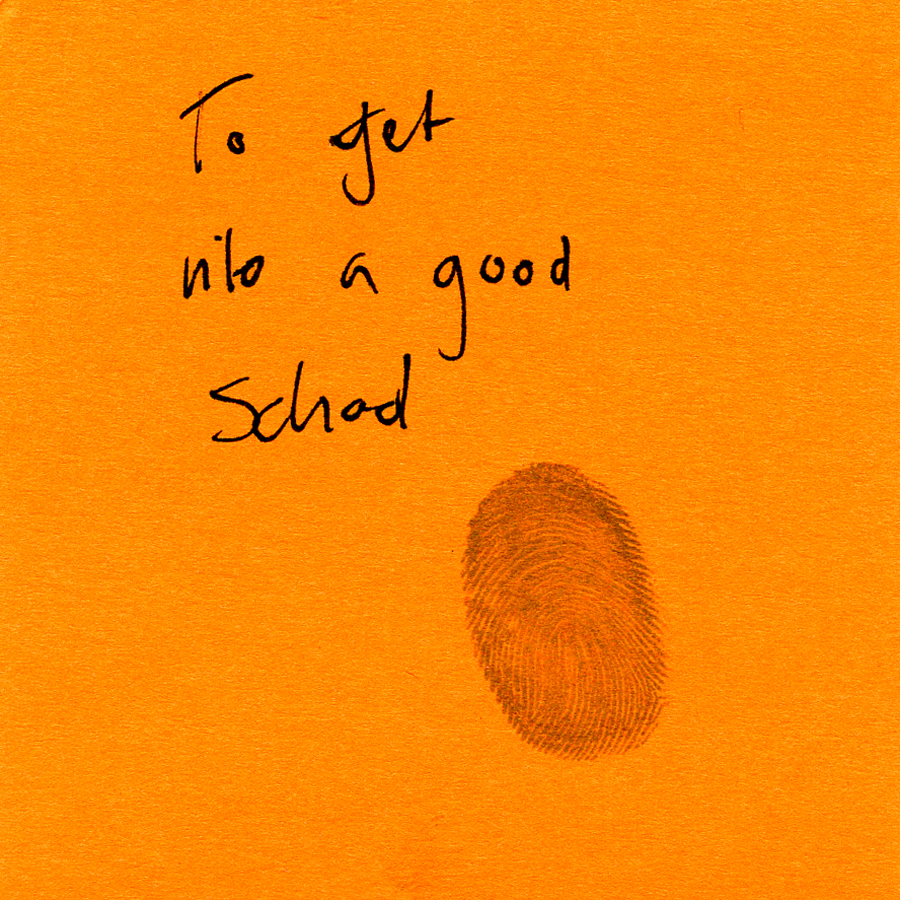 To get
into a good
School